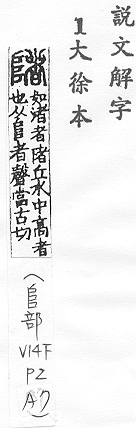 説文解字
1大徐本
陼
如渚者陼丘水中高者
也从𨸏者聲當古切
(𨸏部
V14下
P2